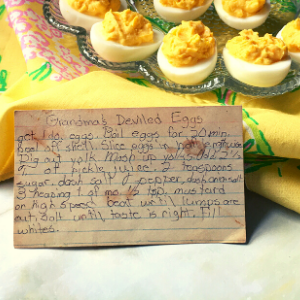 Grandma's Deviled Eggs
get 1 doz. eggs. Boil eggs for 20 min
peel off shell. Slice eggs in
Dig out yolk Mash up yolk Add 2 ½
of pickle juice. 2 teaspoons
sugar dash salt & pepper, dash
3 heaping t of mo ½ tsp. mustard
on high speed beat until lumps are
out, salt until taste is right. Fill
whites.